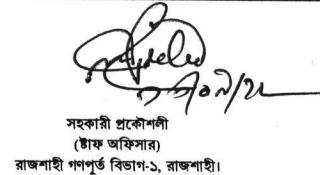 সহকারী প্রকৌশলী
(ষ্টাফ অফিসার)
রাজশাহী গণপূর্ত বিভাগ-১, রাজশাহী।